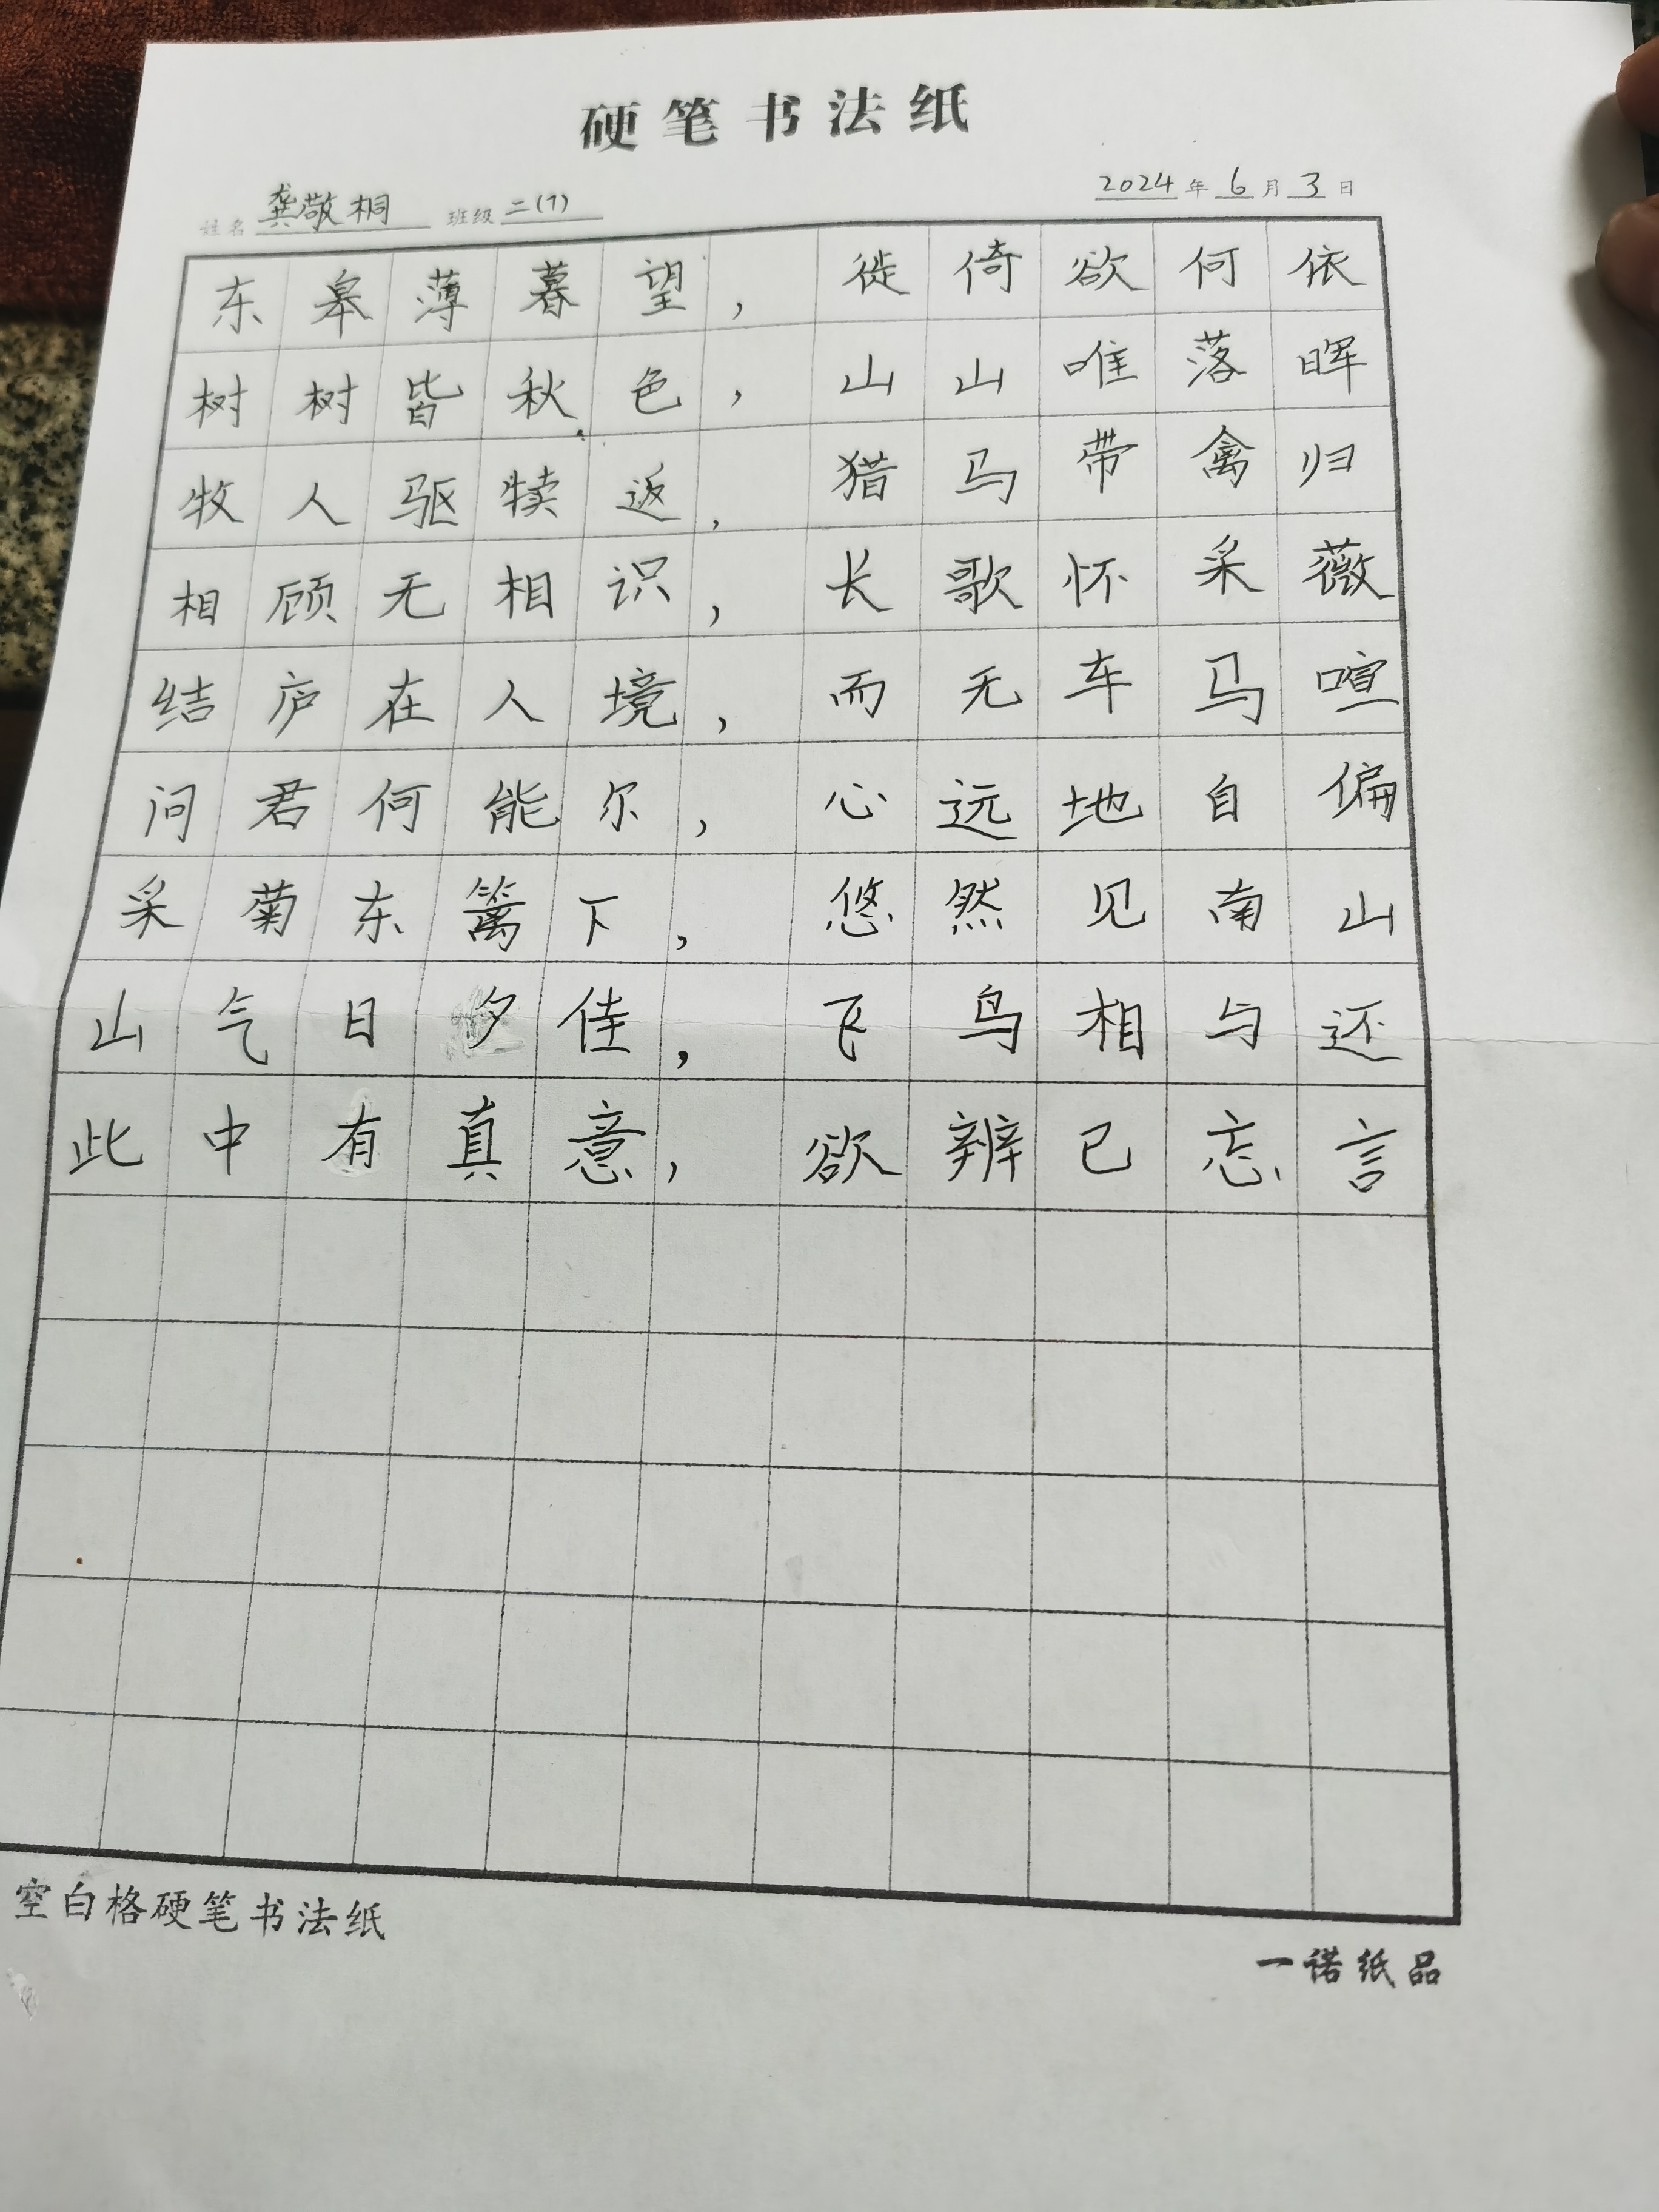 硬笔书法纸
姓名 龚敬桐 班级 二(7) 2024年6月3日
东皋薄暮望，徙倚欲何依
树树皆秋色，山山唯落晖
牧人驱犊返，猎马带禽归
相顾无相识，长歌怀采薇
结庐在人境，而无车马喧
问君何能尔，心远地自偏
采菊东篱下，悠然见南山
山气日夕佳，飞鸟相与还
此中有真意，欲辨已忘言
空白格硬笔书法纸
一诺纸品